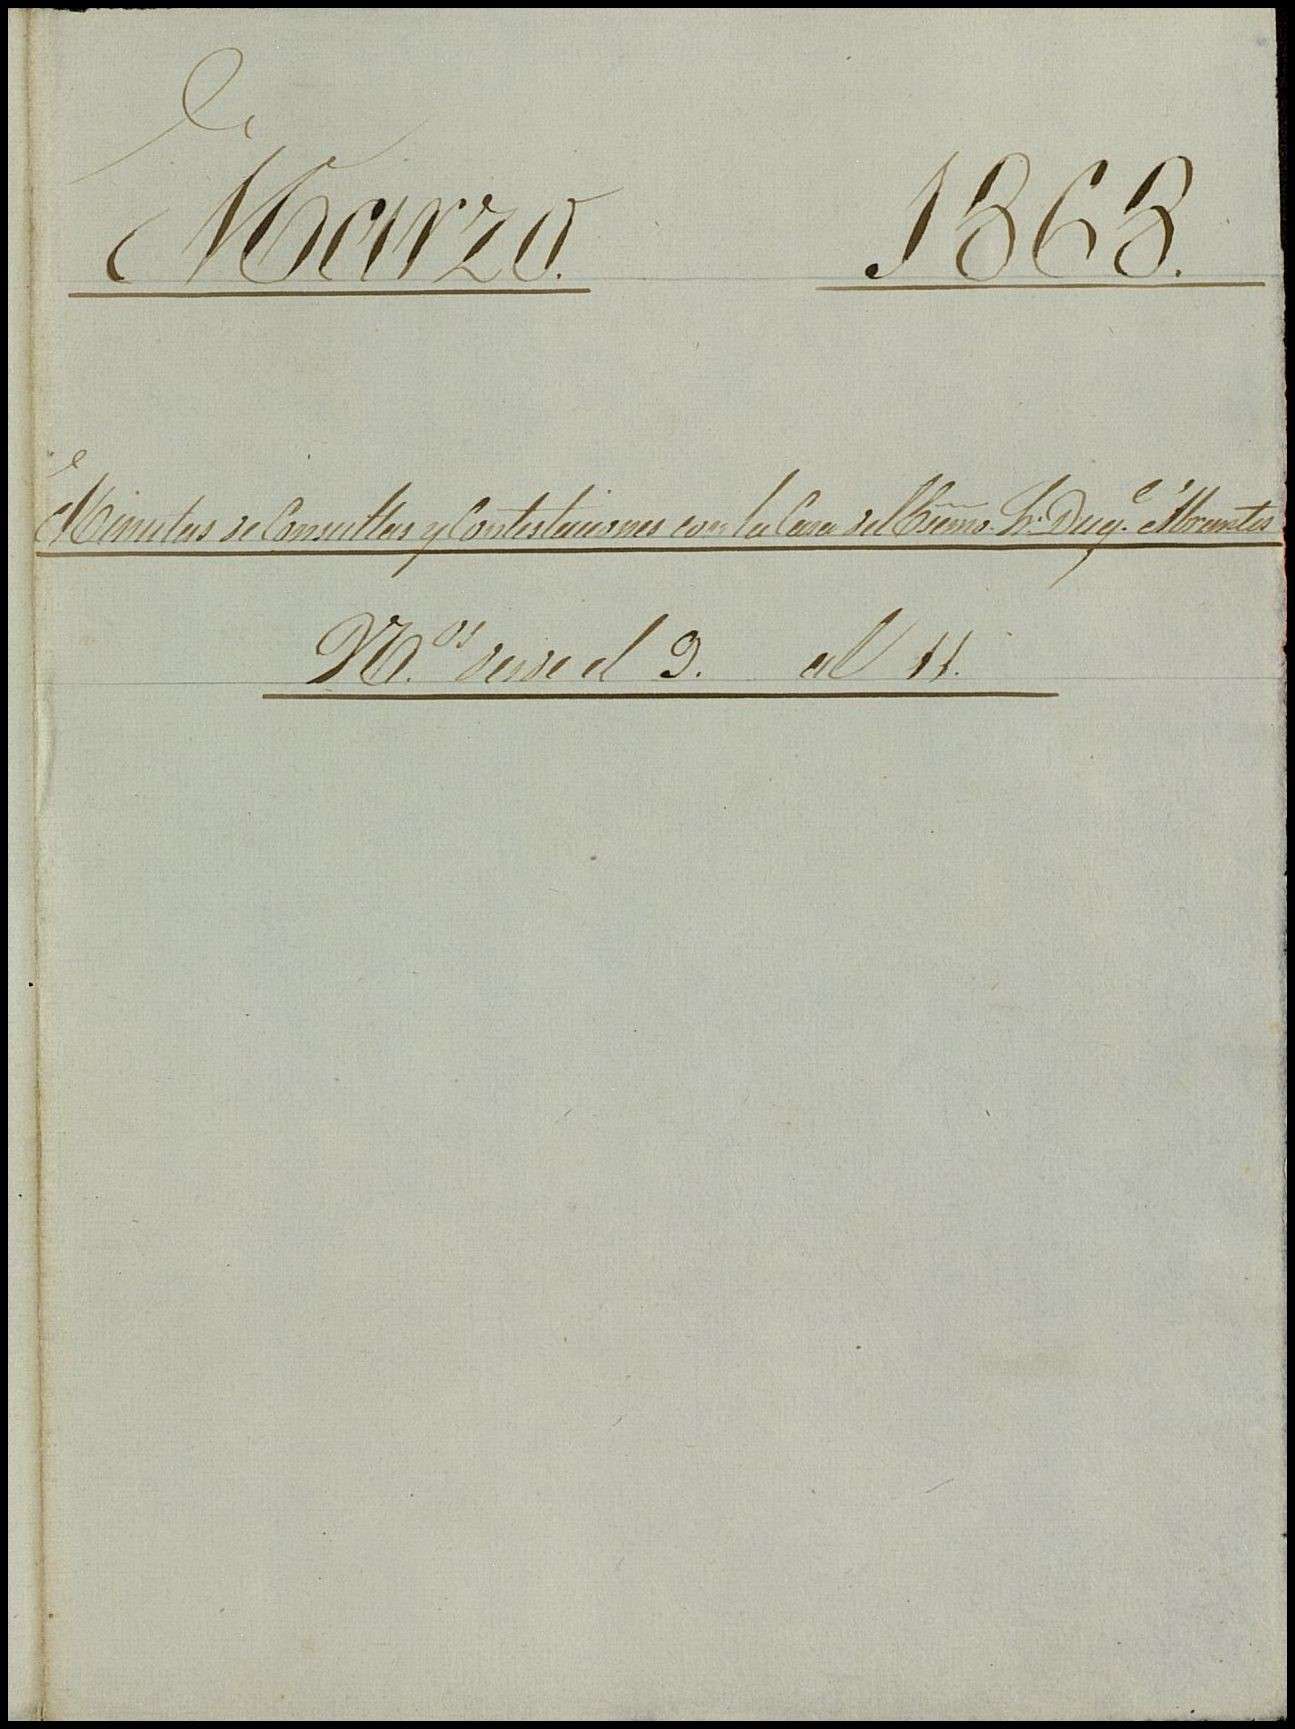 Marzo. 1868.
Minutas de Consultas y Contestaciones con la Casa del Excmo. Sr. Duq.e Abrantes
N.os desde el 9. al 11.